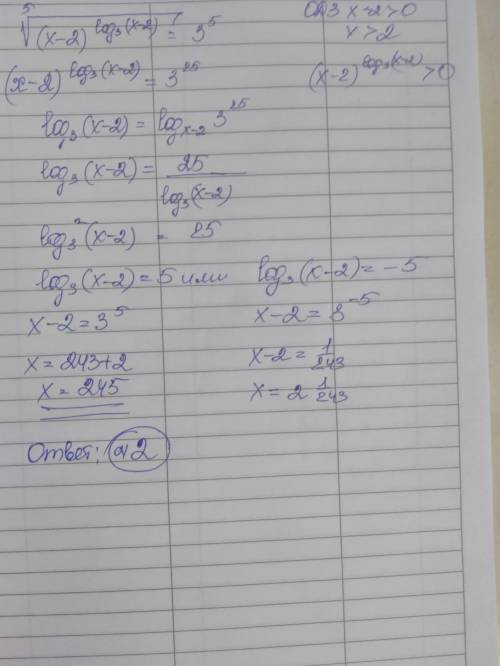 ⁵√((x-2)^(log₃(x-2))) = 3⁵
ОДЗ x-2>0
x>2
(x-2)^(log₃(x-2)) = 3²⁵
(x-2)^(log₃(x-2)) >0
log₃(x-2) = log_(x-2) 3²⁵
log₃(x-2) = 25/log₃(x-2)
log₃²(x-2) = 25
log₃(x-2) = 5 или log₃(x-2) = -5
x-2=3⁵
x-2=3⁻⁵
x=243+2
x-2= 1/243
x= 245
x= 2 1/243
Ответ: 2